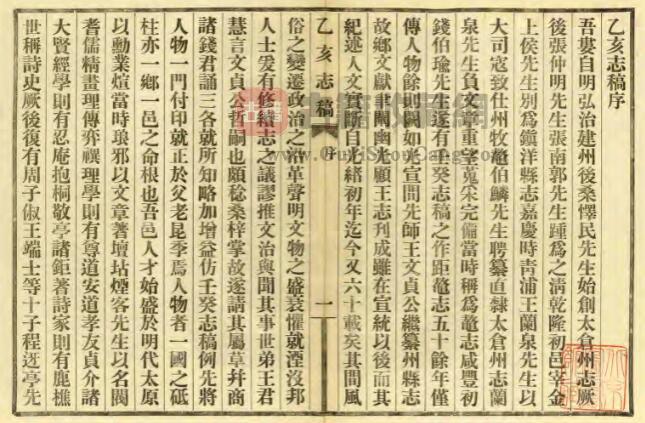 乙亥志稿序
吾婁自明弘治建州後桑懌民先生始創太倉州志厥
後張仲明先生張南郭先生踵爲之淸乾隆初邑宰金
上侯先生別爲鎭洋縣志嘉慶時靑浦王蘭泉先生以
大司寇致仕州牧鼇伯麟先生聘纂直隸太倉州志蘭
泉先生負文章重望蒐采完備當時稱爲鼇志咸豐初
錢伯瑜先生遂有壬癸志稿之作距鼇志五十餘年僅
傳人物餘則闕如光宣間先師王文貞公繼纂州縣志
故鄕文獻聿闡幽光顧王志刊成雖在宣統以後而其
紀述人文實斷自光緖初年迄今又六十載矣其間風
乙亥志稿
序
一
俗之變遷政治之沿革聲明文物之盛衰懼就湮沒邦
人士爰有修續志之議謬推文治與聞其事世弟王君
慧言文貞公哲嗣也頗稔桑梓掌故遂請其屬草幷商
諸錢君誦三各就所知略加增益仿壬癸志稿例先將
人物一門付印就正於父老昆季焉人物者一國之砥
柱亦一鄕一邑之命根也吾邑人才始盛於明代太原
以勳業煊當時琅邪以文章著壇坫煙客先生以名閥
耆儒精畫理傳弈禩理學則有尊道安道孝友貞介諸
大賢經學則有忍庵抱桐敬亭諸鉅著詩家則有鹿樵
世稱詩史厥後復有周子俶王端士等十子程迓亭先
www.GujiShouCang.com